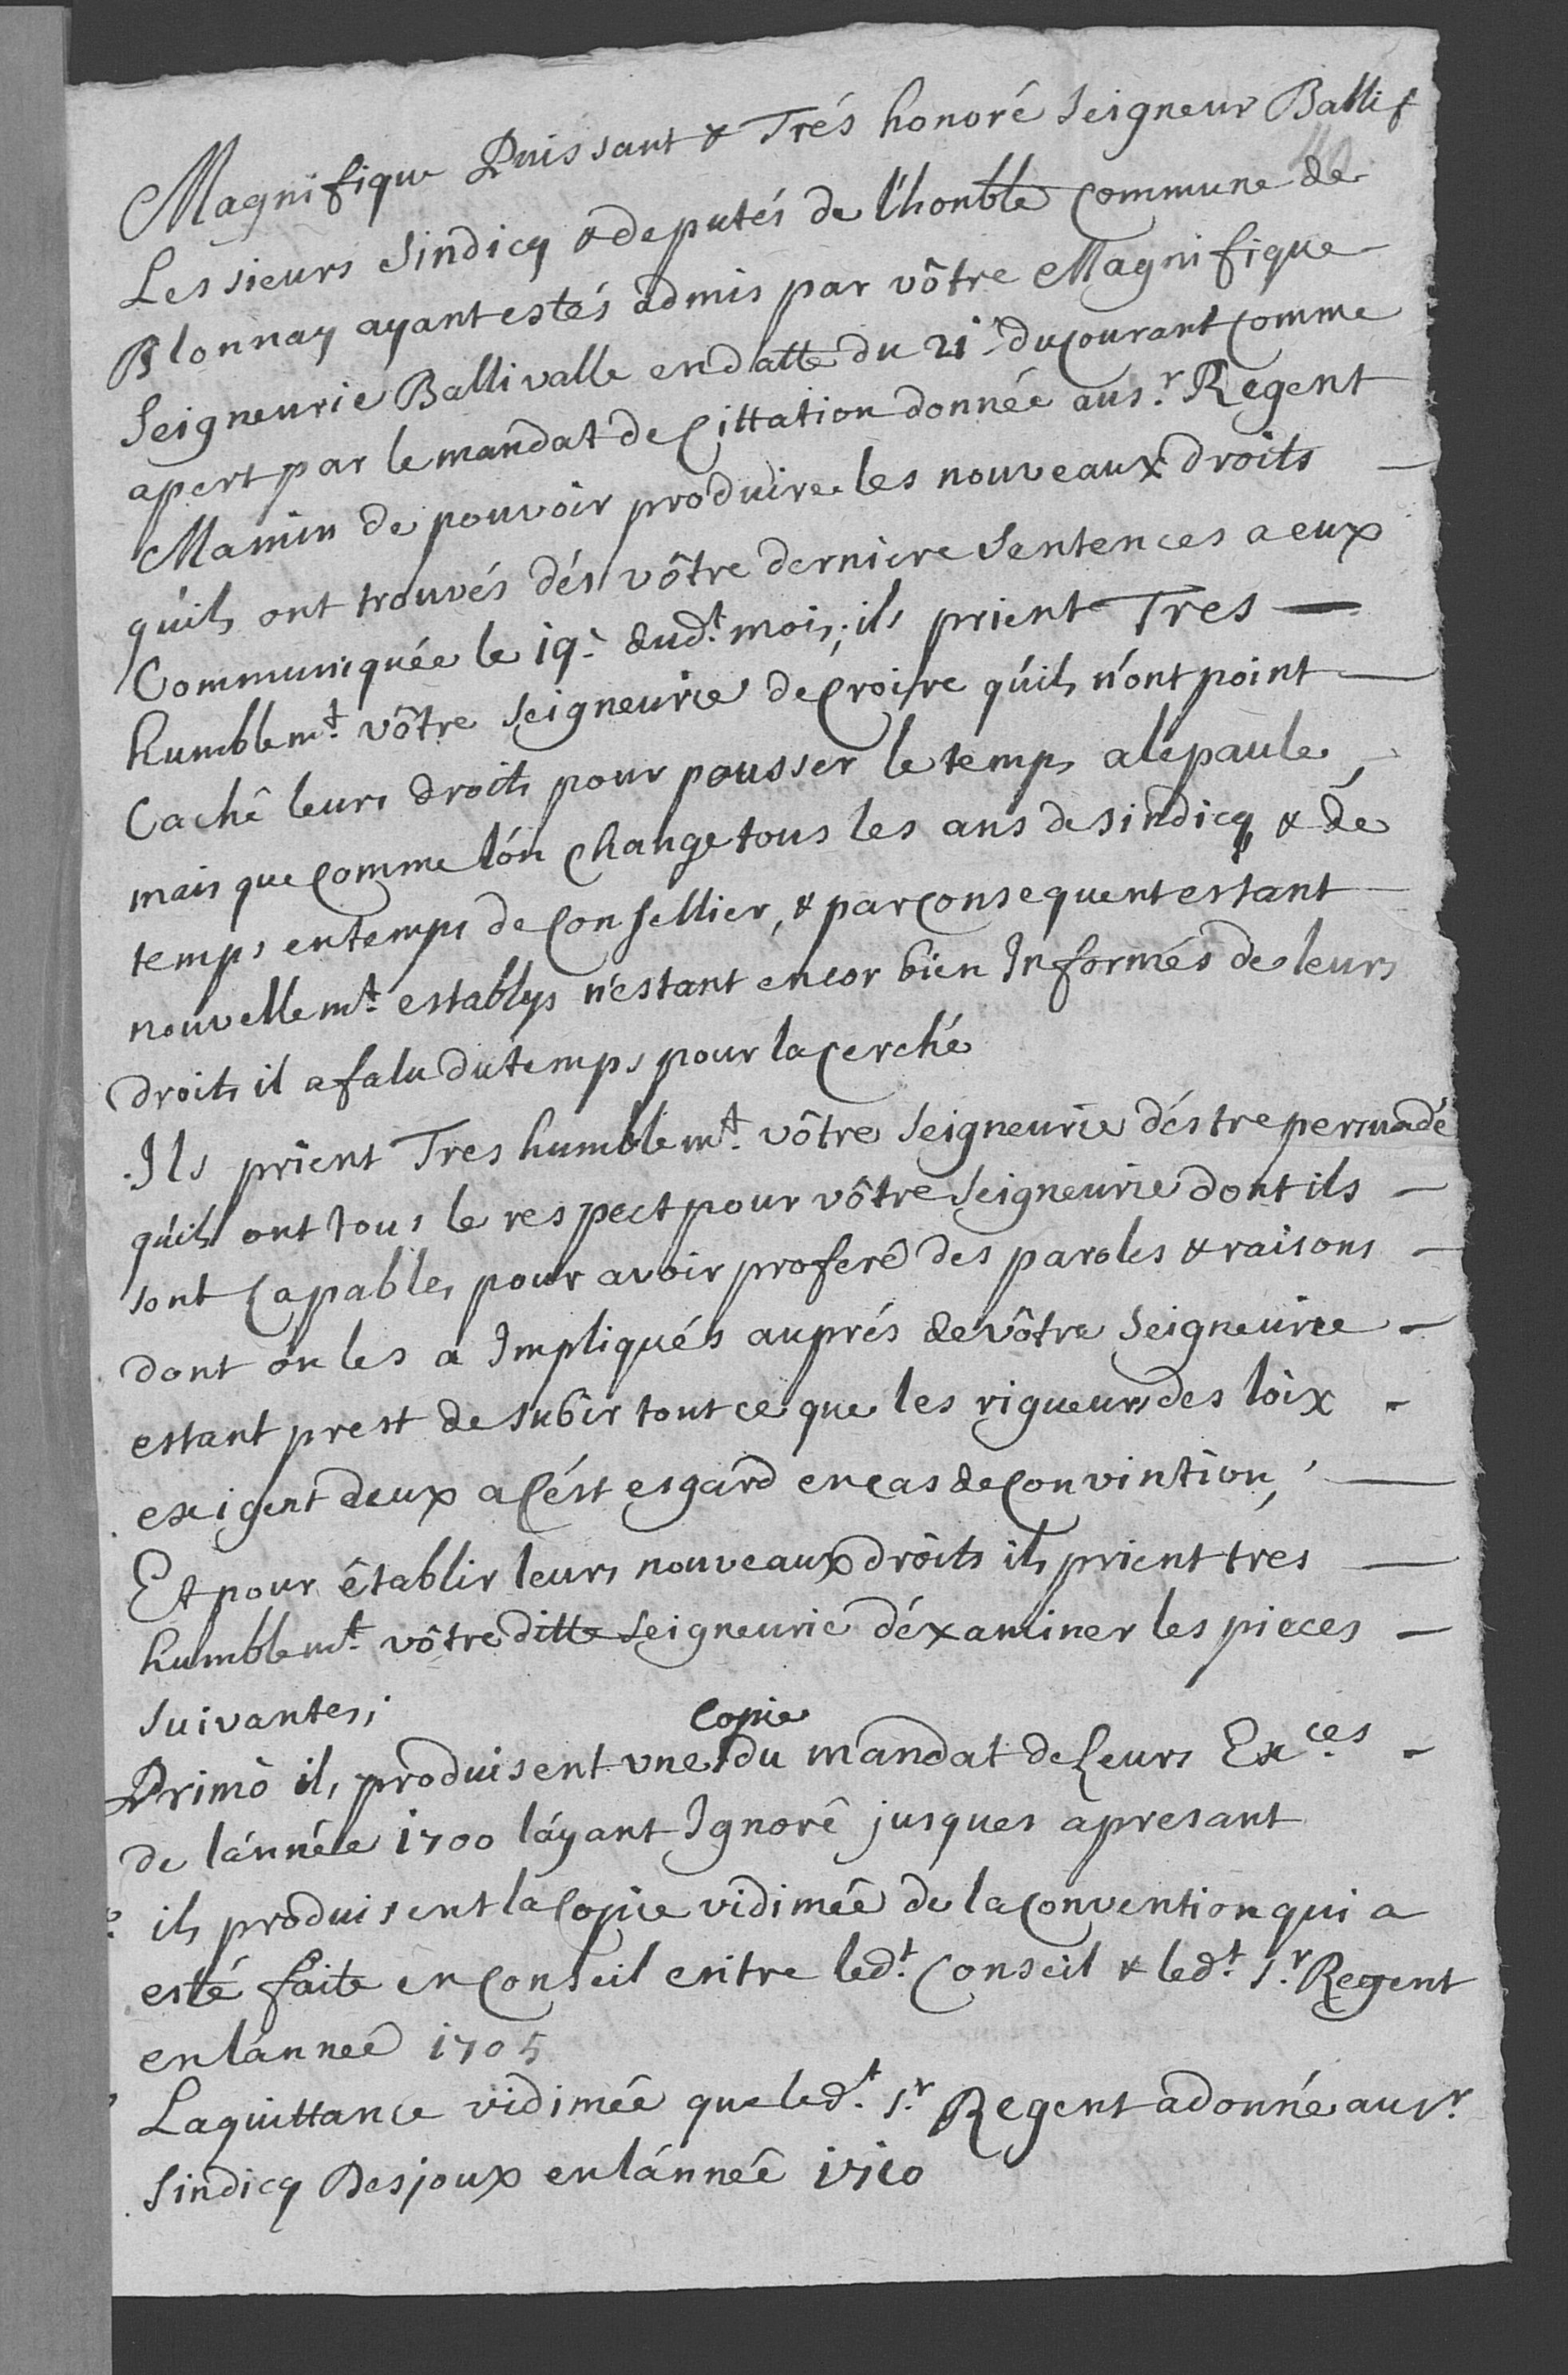 Magnifique Puissant & Trés honoré Seigneur Ballif
Les sieurs Sindicq & deputés de l'honble Commune de
Blonnay ayant estés admis par vôtre Magnifique
Seigneurie Ballivalle en datte du 21e du Courant Comme
apert par le mandat de Cittation donnée au sr. Regent
Mamin de pouvoir produire les nouveaux droits
qu'ils ont trouvés dés vôtre derniere Sentences a eux
Communiquée le 19e dudt. mois; ils prient Tres
humblemt. vôtre Seigneurie de Croire qu'ils n'ont point
Caché leurs droits pour pousser le temps a lépaule,
mais que Comme lón Change tous les ans de sindicq & de
temps en temps de Consellier, & par Consequent estant
nouvellemt. establys n'estant encor bien Informés de leurs
droits il a falu du temps pour la Cerché
Ils prient Tres humblemt. vôtre Seigneurie déstre persuadé
qu'ils ont tous le respect pour vôtre Seigneurie dont ils
sont Capables pour avoir proferé des paroles & raisons
dont ón les a Impliqués auprés de vôtre Seigneurie
estant prest de subir tout ce que les rigueurs des loix
exigent deux a Cést esgard en cas de Convintion,
Et pour établir leurs nouveaux droits ils prient tres
humblemt. vôtre ditte Seigneurie déxaminer les pieces
suivantes;
Primò ils produisent une Copie du mandat de Leurs Exces
de lánnée 1700 láyant Ignoré jusques apresant
ils produisent la Copie vidimée de la Convention qui a
esté faite en Conseil entre ledt. Conseil & ledt. sr. Regent
en lánneé 1705
La quittance vidimée que ledt. sr. Regent a donné au sr.
Sindicq Desjoux en lánneé 1710